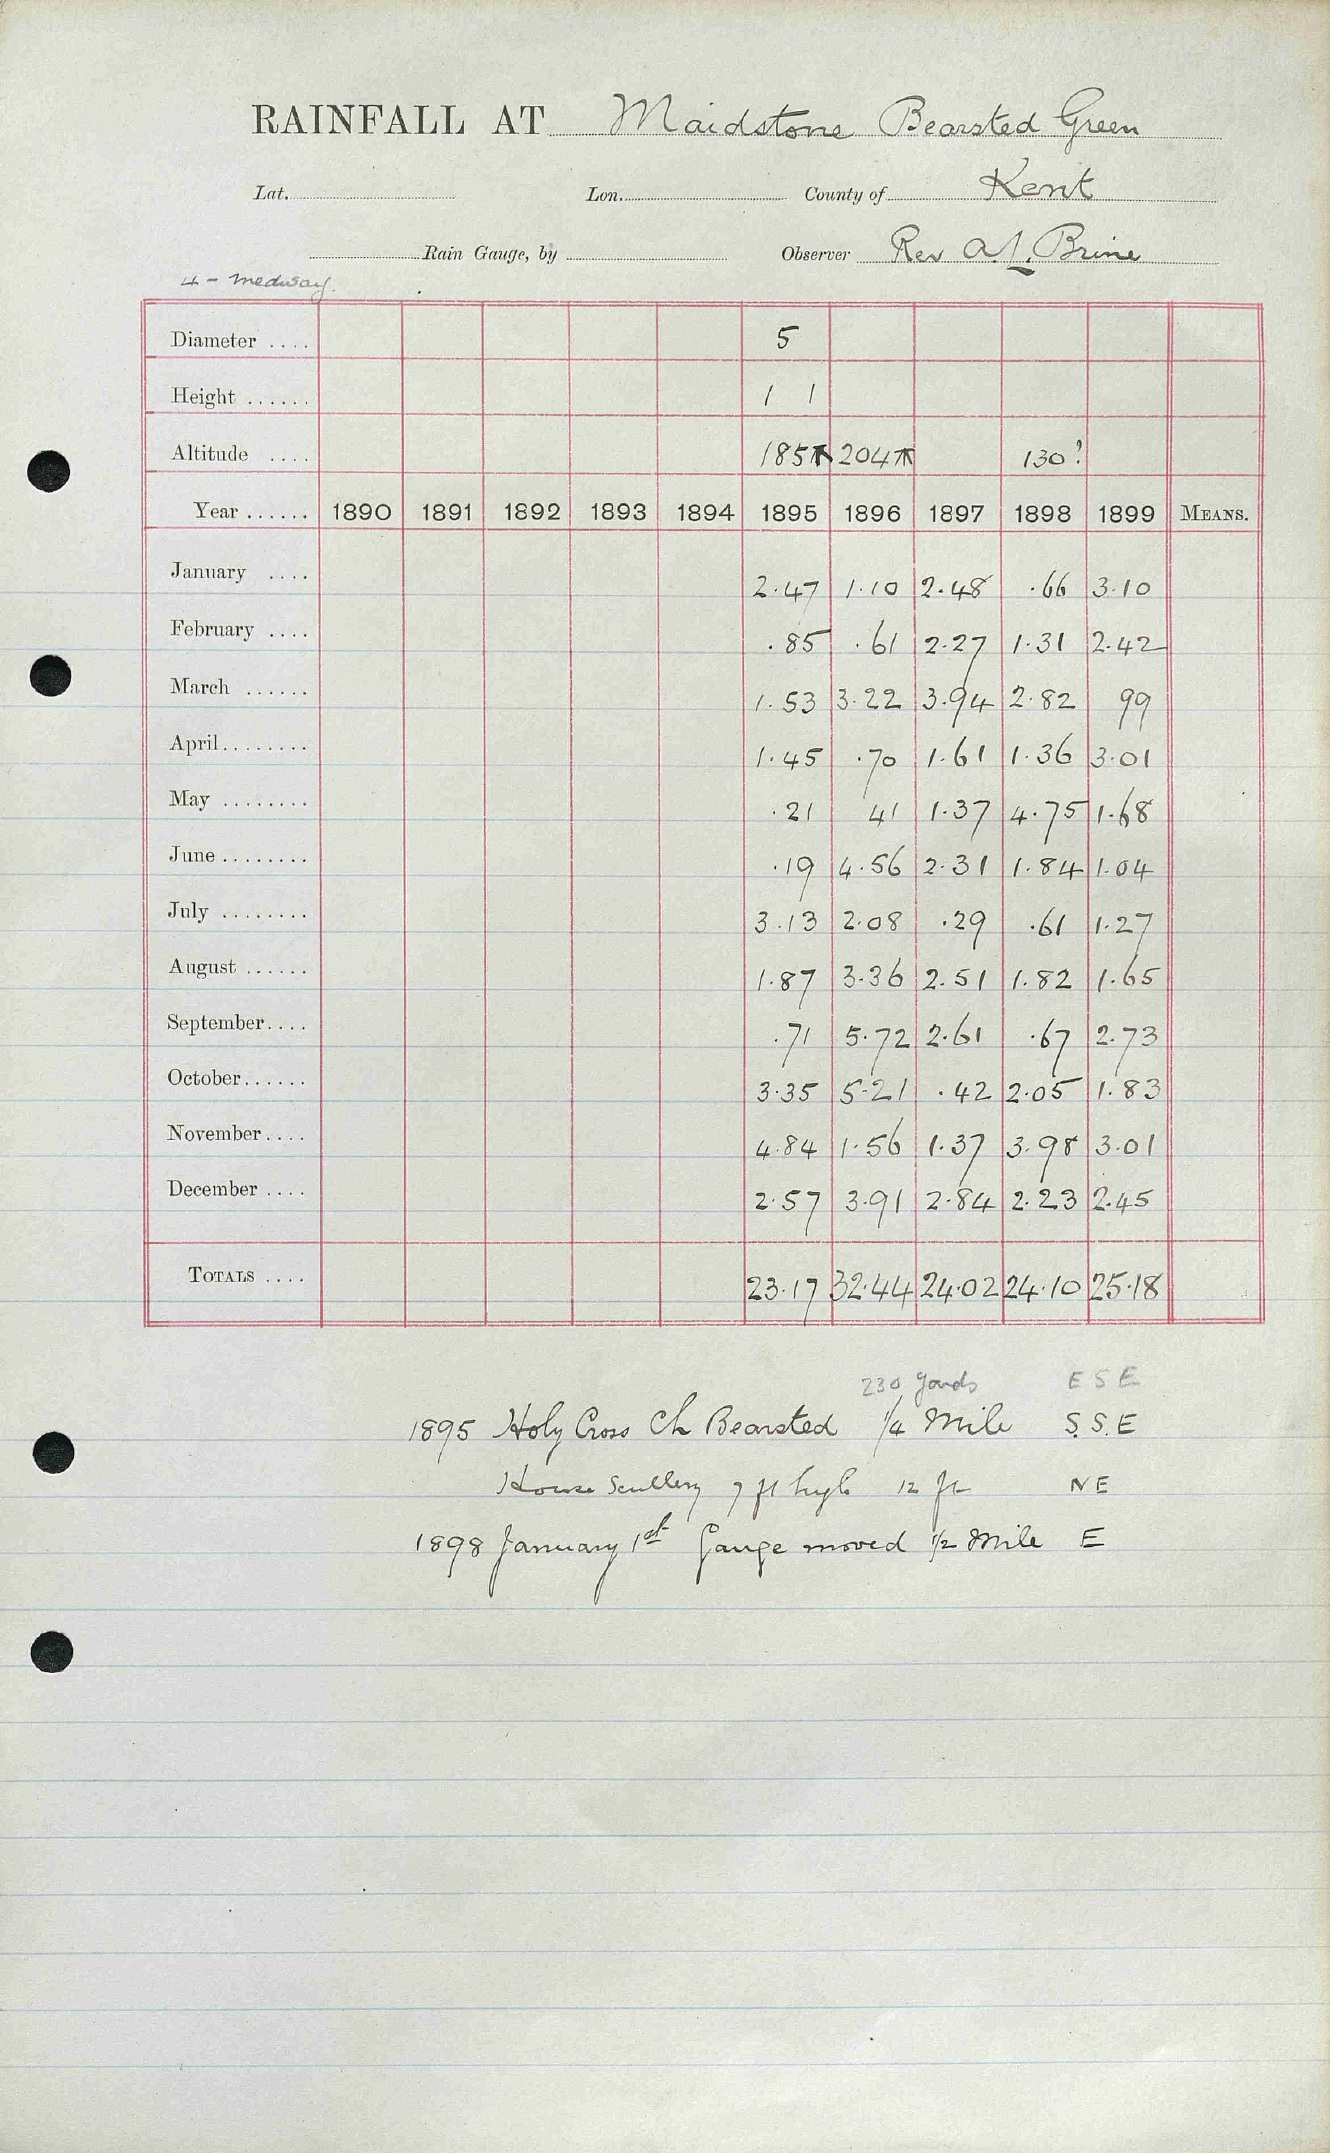 RAINFALL AT Maidstone Bearsted Green
Lat. Lon. County of Kent
Rain Gauge, by Observer Rev A.L. Brine
4 - Medway.
Diameter .... 5
Height ...... 1 1
Altitude .... 185 204 130?
Year ...... 1890 1891 1892 1893 1894 1895 1896 1897 1898 1899 MEANS.
January .... 2.47 1.10 2.48 .66 3.10
February .... .85 .61 2.27 1.31 2.42
March ...... 1.53 3.22 3.94 2.82 99
April........ 1.45 .70 1.61 1.36 3.01
May ........ .21 41 1.37 4.75 1.68
June ........ .19 4.56 2.31 1.84 1.04
July ........ 3.13 2.08 .29 .61 1.27
August ...... 1.87 3.36 2.51 1.82 1.65
September.... .71 5.72 2.61 .67 2.73
October...... 3.35 5.21 .42 2.05 1.83
November.... 4.84 1.56 1.37 3.98 3.01
December .... 2.57 3.91 2.84 2.23 2.45
TOTALS .... 23.17 32.44 24.02 24.10 25.18
230 yards E S E
1895 Holy Cross Ch Bearsted 1/4 Mile S.S.E
House Scullery 7 ft high 12 ft NE
1898 January 1st Gauge moved 1/2 Mile E